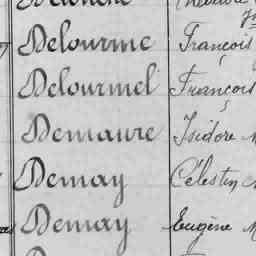 Delourme François
Delourmel François
Demaure Isidore
Demay Célestin
Demay Eugène